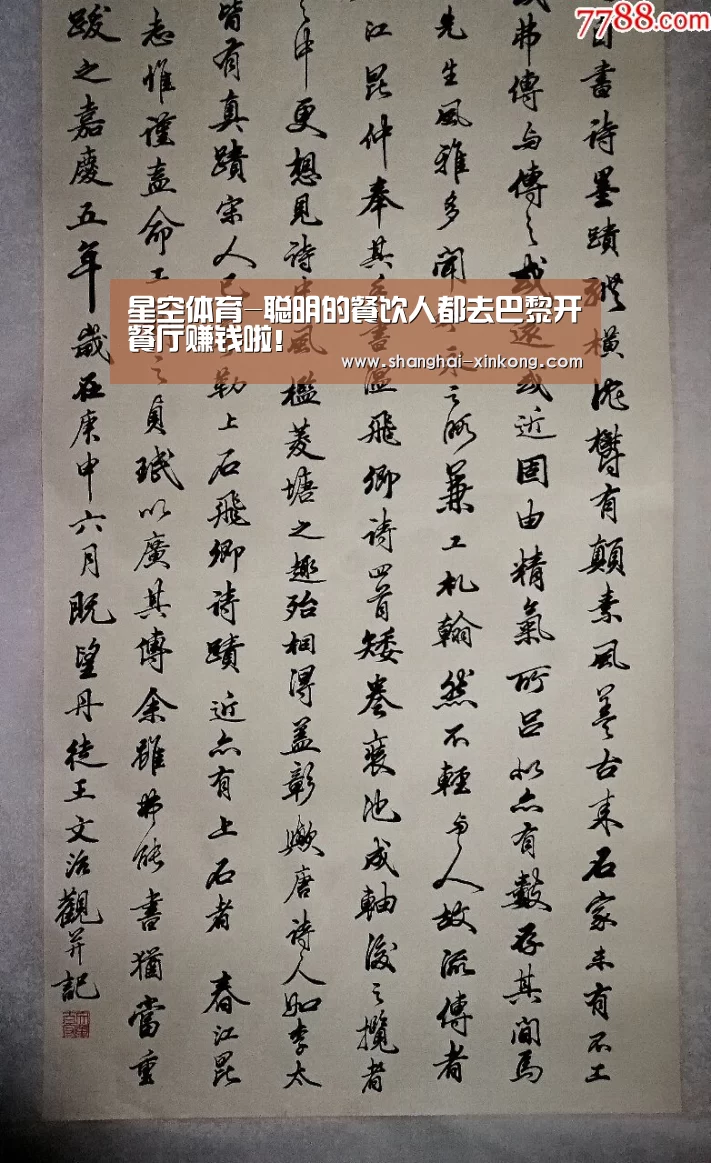 7788.com
自書诗墨蹟縱橫沈鬱有顛素風善古来名家未有不工
弗傳与傳之或遠或近固由精氣所吕然亦有數存其间焉
先生風雅多闻
之所兼工札翰然不輕与人故流傳者
江昆仲奉其
書温飛卿诗四首矮卷褱池成軸後之攬者
中更想見诗
風檻菱塘之趣殆相得益彰欤唐诗人如李太
皆有真蹟宋人已
勒上石飛卿诗蹟近亦有上石者 春江昆
志惟谨盍命工
之貞珉以廣其傳余雖弗能書猶當重
跋之嘉慶五年歲在庚申六月既望丹徒王文治觀并記
星空体育-聪明的餐饮人都去巴黎开
餐厅赚钱啦！
www.shanghai-xinkong.com